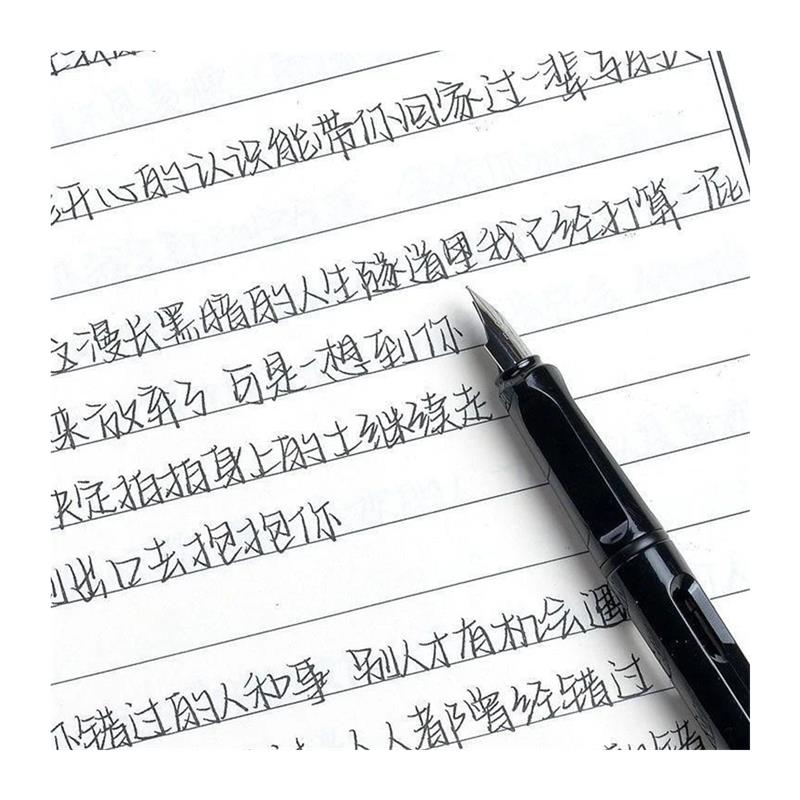 开心的认识能带你回家过一辈子的人
这漫长黑暗的人生隧道里我已经打算一屁
来放弃了 可是一想到你
决定拍拍身上的土继续走
到出口去抱抱你
你错过的人和事 别人才有机会遇
人人都曾经错过